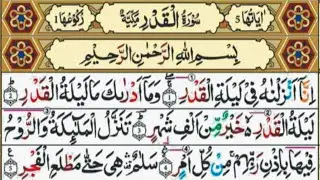 اٰيَاتُهَا ٥ سُوْرَةُ الْقَدْرِ مَكِّيَّةٌ رُكُوْعُهَا ١
بِسْمِ اللّٰهِ الرَّحْمٰنِ الرَّحِيْمِ
اِنَّاۤ اَنْزَلْنٰهُ فِيْ لَيْلَةِ الْقَدْرِ ١ وَمَاۤ اَدْرٰىكَ مَا لَيْلَةُ الْقَدْرِ ٢
لَيْلَةُ الْقَدْرِ خَيْرٌ مِّنْ اَلْفِ شَهْرٍ ٣ تَنَزَّلُ الْمَلٰٓئِكَةُ وَالرُّوْحُ
فِيْهَا بِاِذْنِ رَبِّهِمْ مِّنْ كُلِّ اَمْرٍ ٤ سَلٰمٌ هِيَ حَتّٰى مَطْلَعِ الْفَجْرِ ٥